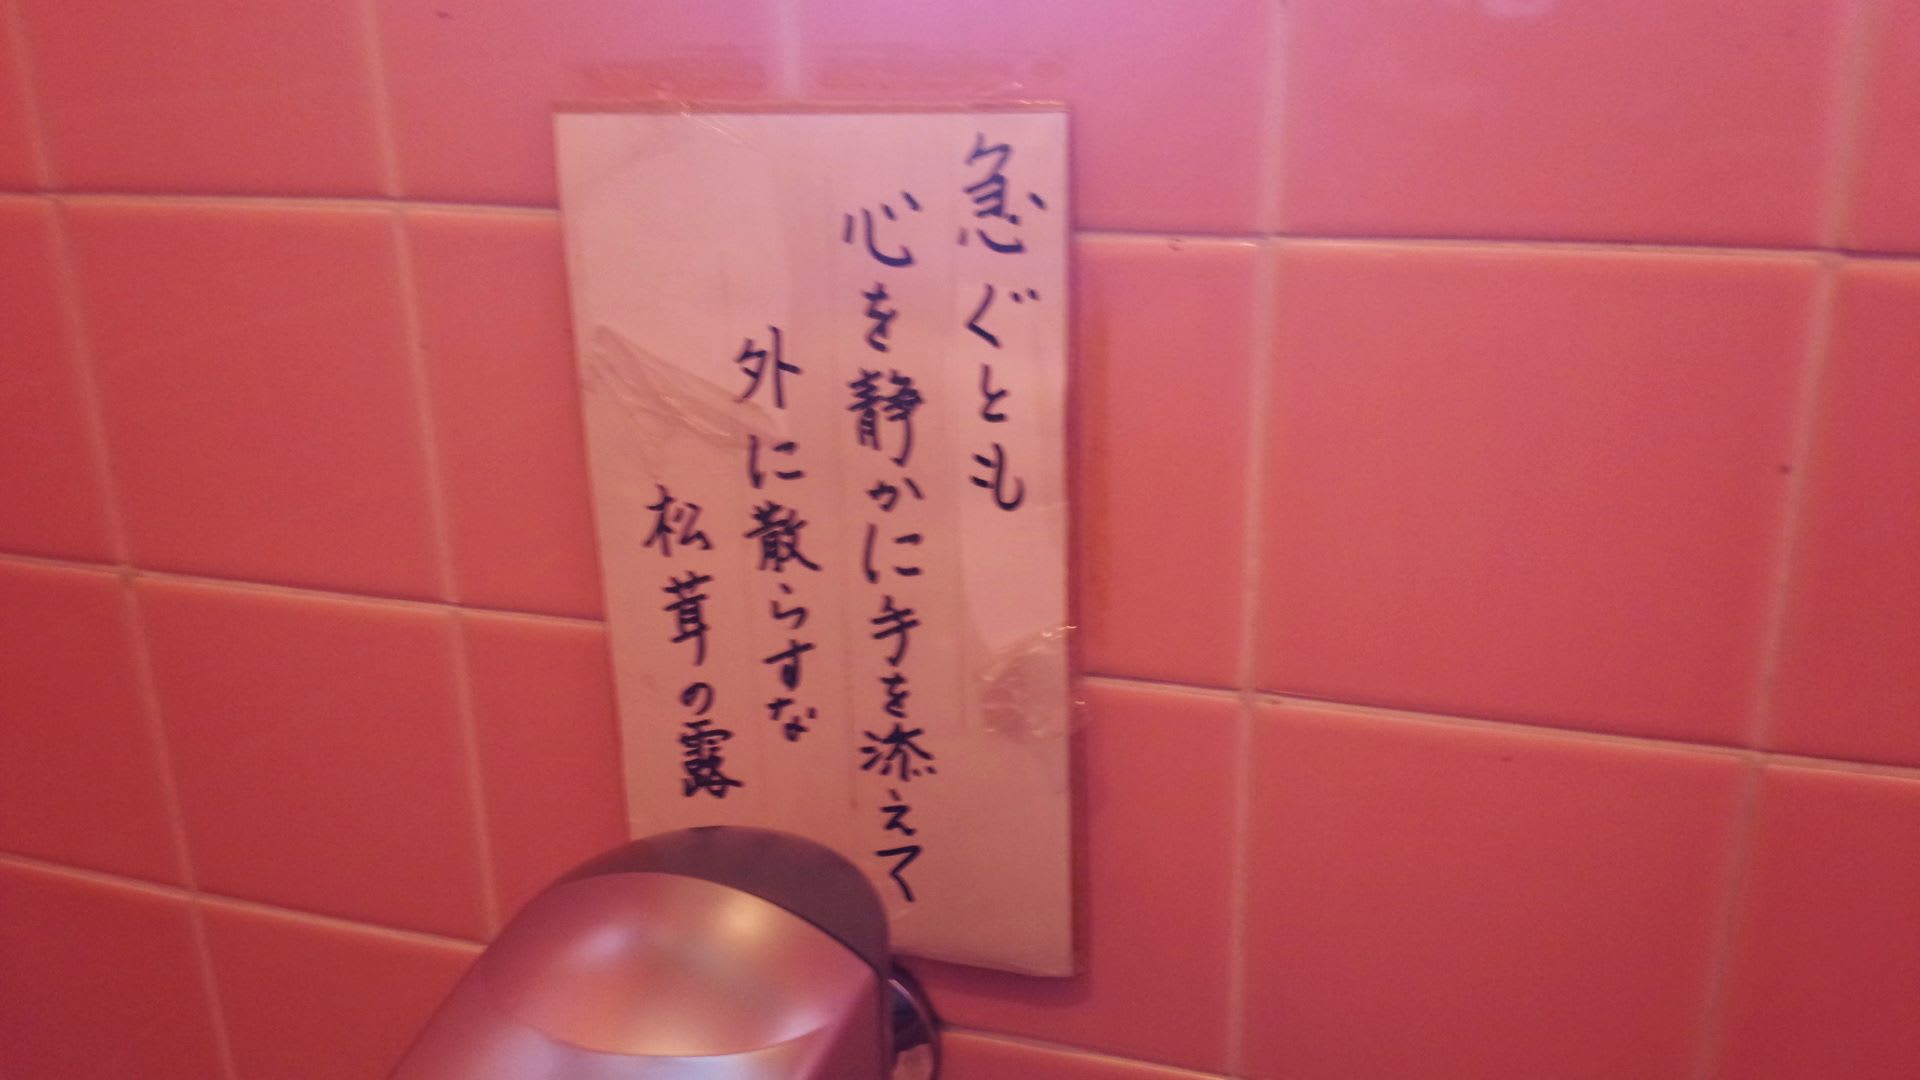 急ぐとも
心を静かに手を添えて
外に散らすな
松茸の露